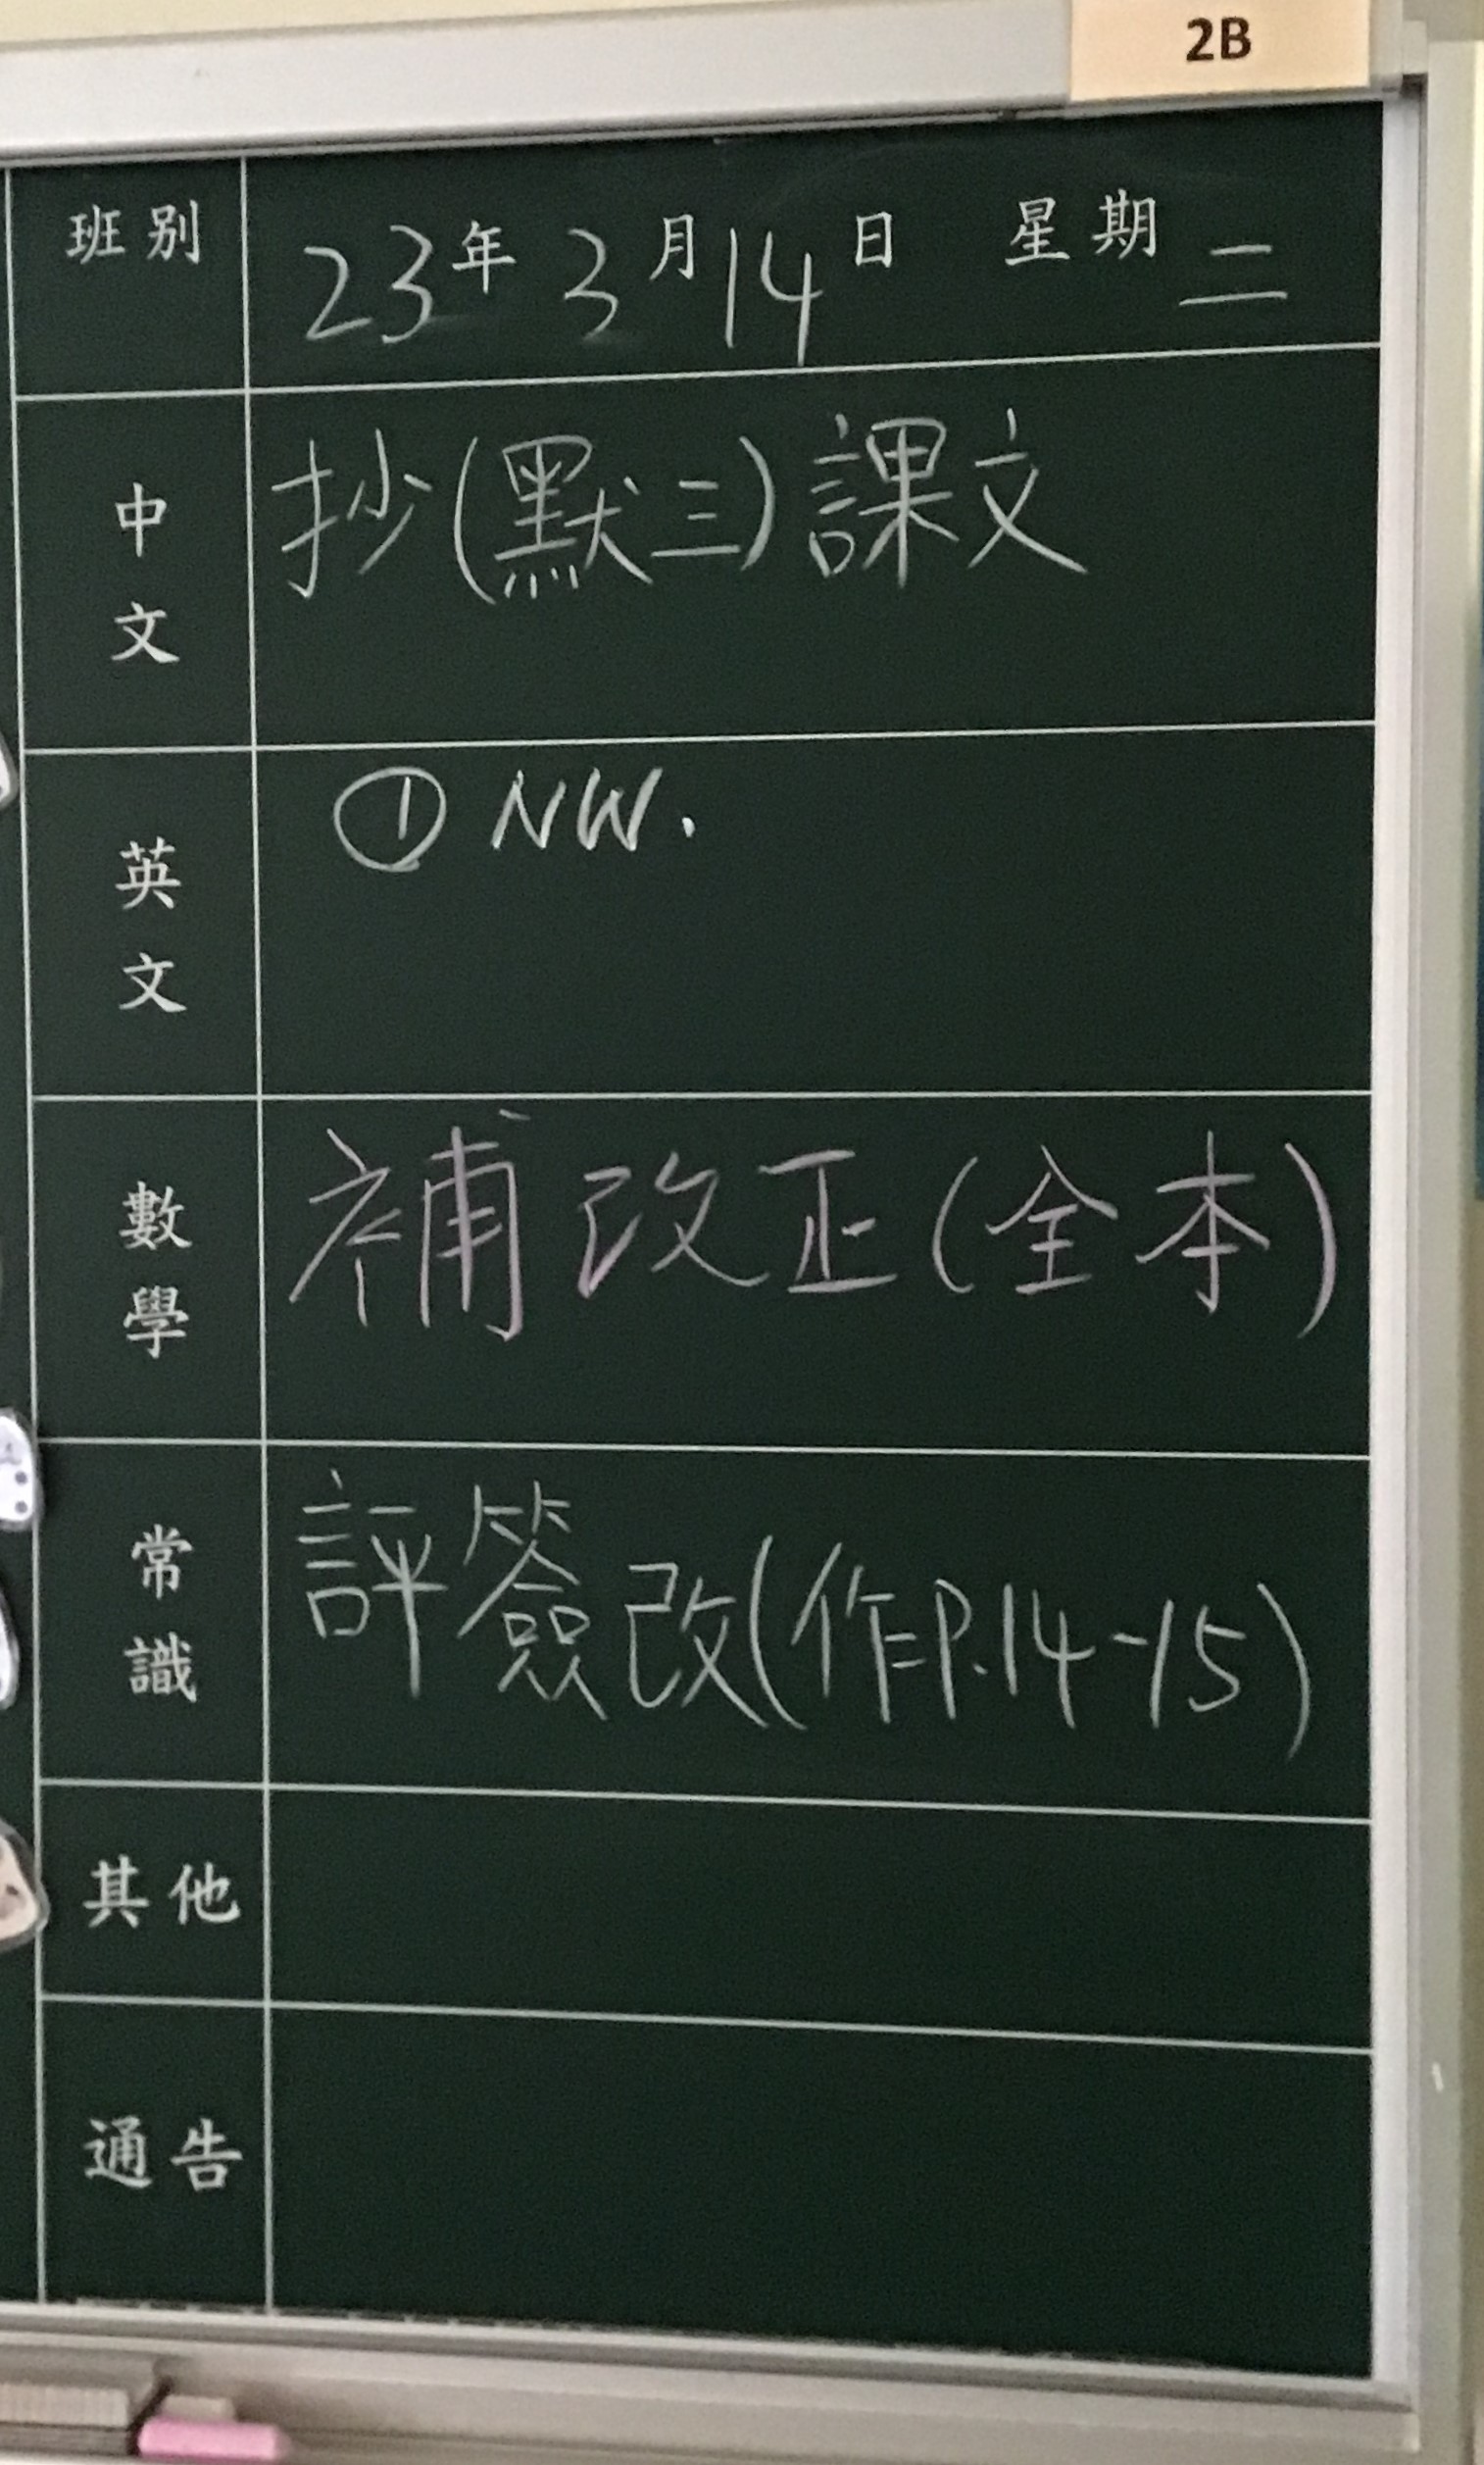 2B
班別 23年3月14日 星期二
中文 抄(默三)課文
英文 ① NW.
數學 補改正(全本)
常識 評簽改(作P.14-15)
其他
通告